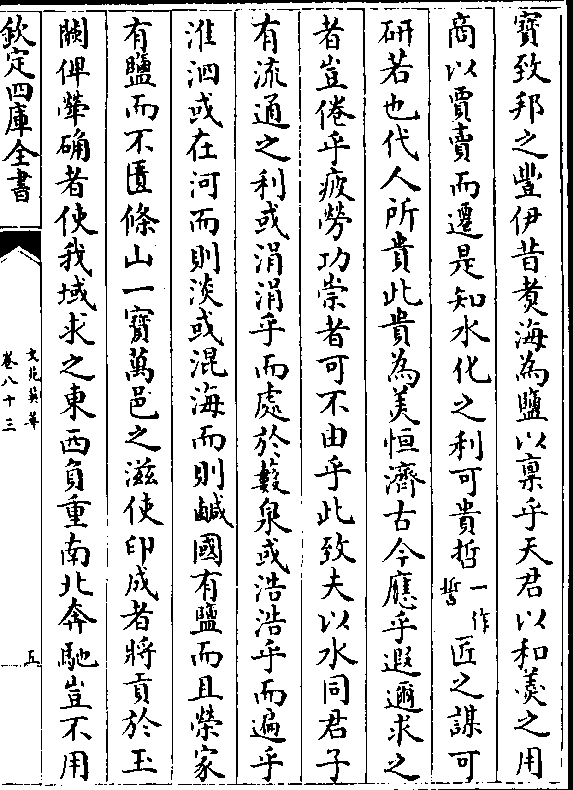 寳致邦之豐伊昔煑海為鹽以禀乎天君以和羮之用
商以賈賣而遷是知水化之利可貴哲一作哲匠之謀可
研若也代人所貴此貴為美恒濟古今應乎遐邇求之
者豈倦乎疲勞功崇者可不由乎此致夫以水同君子
有流通之利或涓涓乎而處於薮泉或浩浩乎而遍乎
淮泗或在河而則淡或混海而則鹹國有鹽而且榮家
有鹽而不匱條山一寳萬邑之滋使印成者將貢於玉
闕俾犖确者使我域求之東西負重南北奔馳豈不用
欽定四庫全書
文苑英華
卷八十三
五